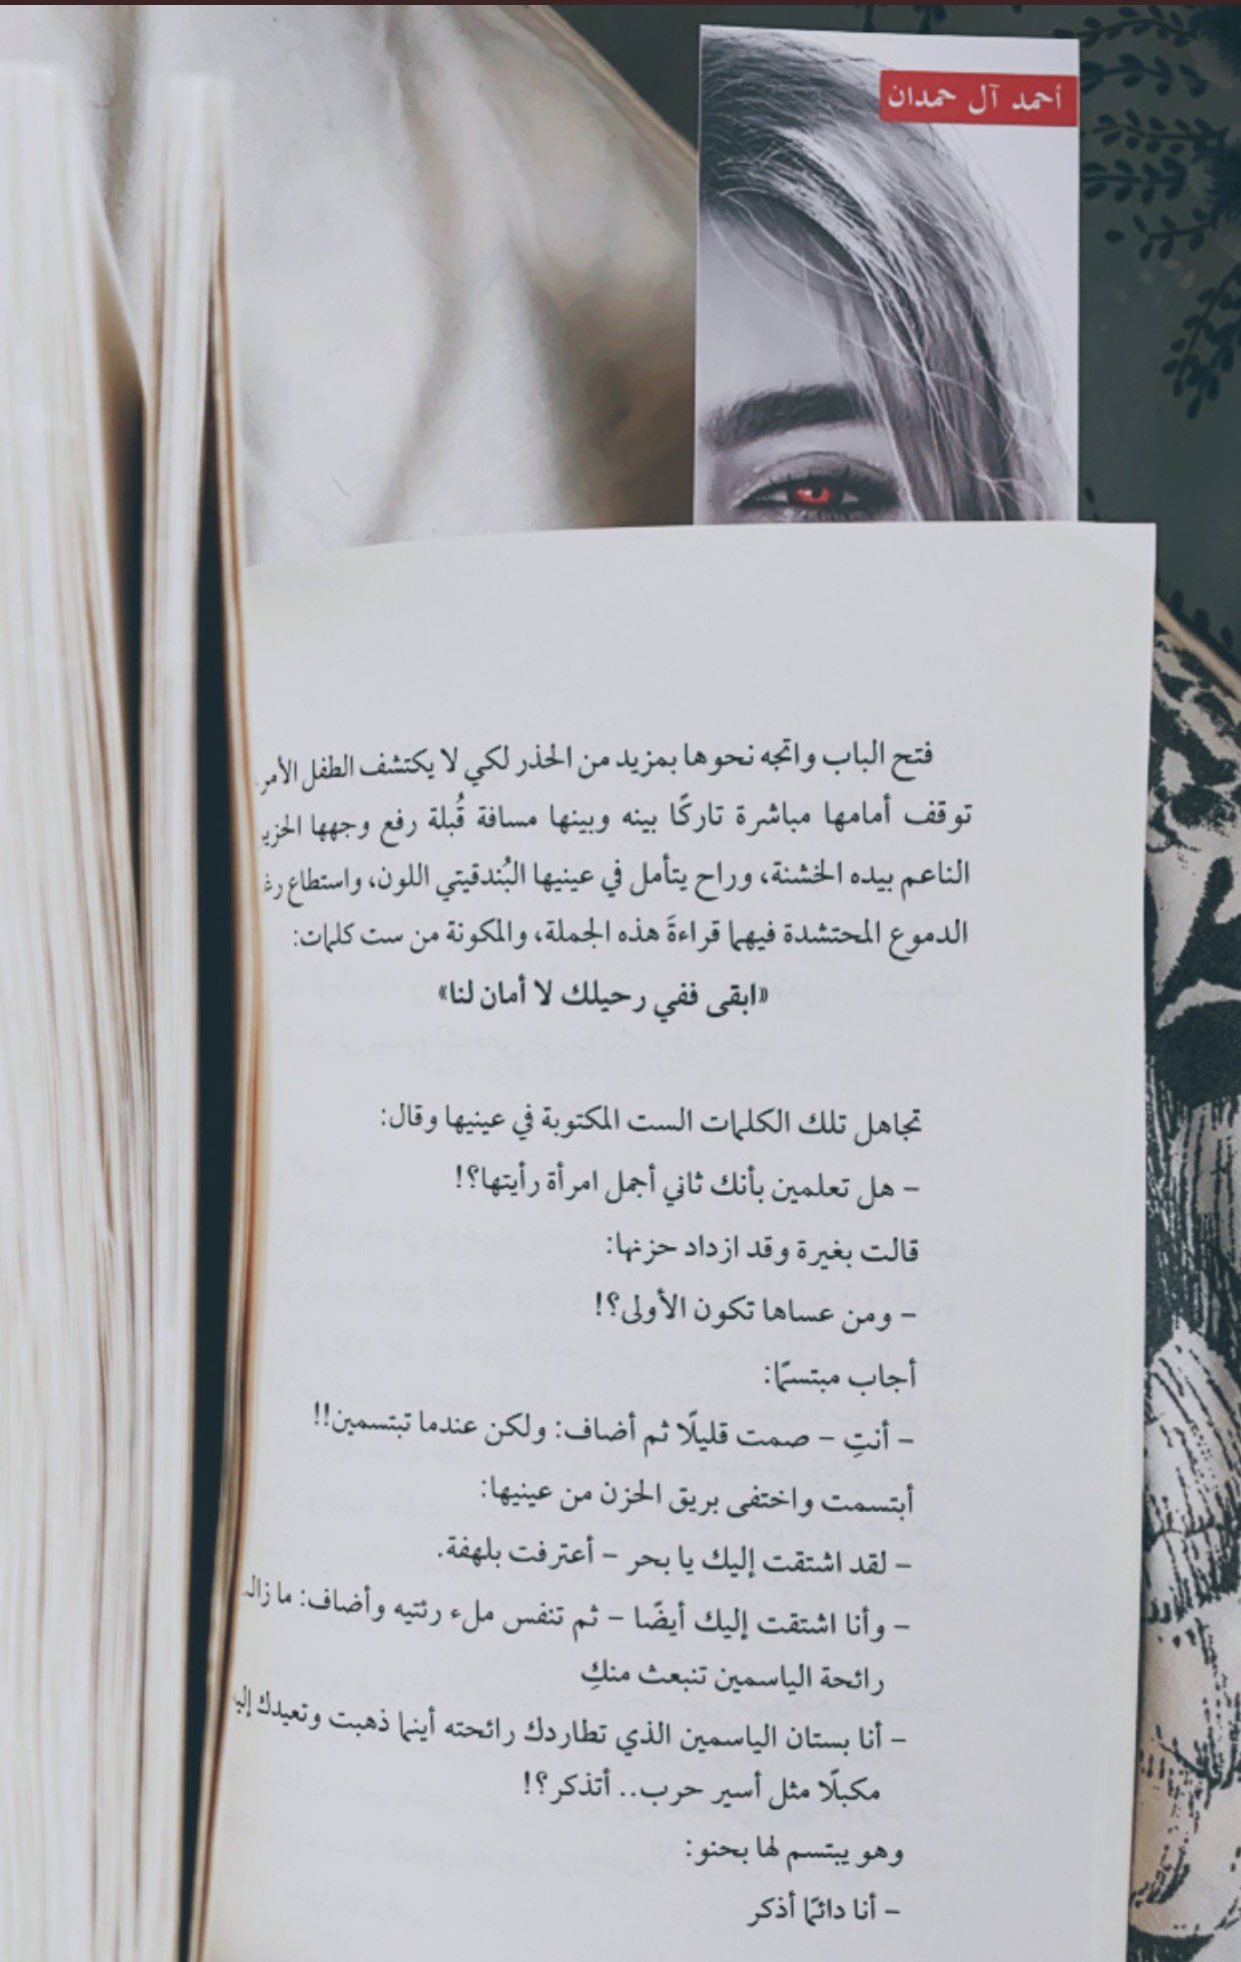 أحمد آل حمدان
فتح الباب واتجه نحوها بمزيد من الحذر لكي لا يكتشف الطفل الأمر
توقف أمامها مباشرة تاركًا بينه وبينها مسافة قُبلة رفع وجهها
الناعم بيده الخشنة، وراح يتأمل في عينيها البُندقيتي اللون، واستطاع
الدموع المحتشدة فيهما قراءةَ هذه الجملة، والمكونة من ست كلمات:
«ابقى ففي رحيلك لا أمان لنا»
تجاهل تلك الكلمات الست المكتوبة في عينيها وقال:
– هل تعلمين بأنك ثاني أجمل امرأة رأيتها؟!
قالت بغيرة وقد ازداد حزنها:
– ومن عساها تكون الأولى؟!
أجاب مبتسمًا:
– أنتِ – صمت قليلًا ثم أضاف: ولكن عندما تبتسمين!!
أبتسمت واختفى بريق الحزن من عينيها:
– لقد اشتقت إليك يا بحر – أعترفت بلهفة.
– وأنا اشتقت إليك أيضًا – ثم تنفس ملء رئتيه وأضاف: ما
رائحة الياسمين تنبعث منكِ
– أنا بستان الياسمين الذي تطاردك رائحته أينما ذهبت وتعيدك
مكبلًا مثل أسير حرب.. أتذكر؟!
وهو يبتسم لها بحنو:
– أنا دائمًا أذكر